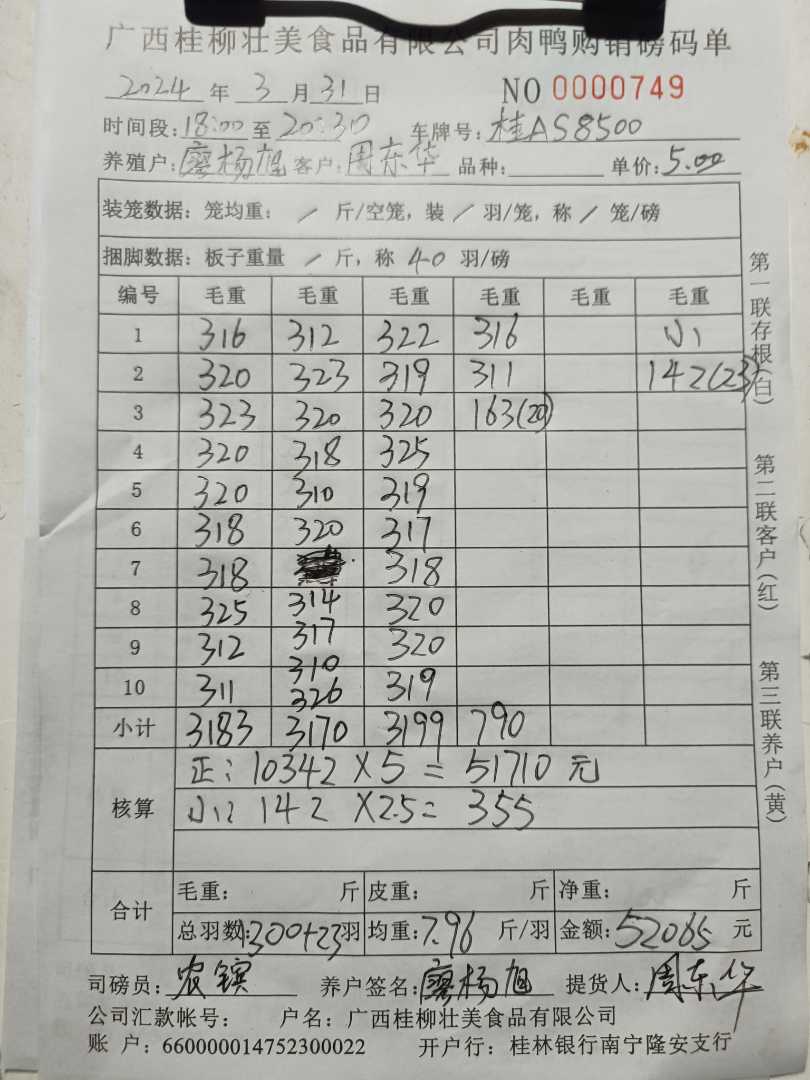 广西桂柳壮美食品有限公司肉鸭购销磅码单
2024 年 3 月 31 日 NO 0000749
时间段:18:00 至 20:30 车牌号:桂AS8500
养殖户:廖杨旭 客户:周东华 品种: 单价:5.00
装笼数据:笼均重: / 斤/空笼,装 / 羽/笼,称 / 笼/磅
捆脚数据:板子重量 / 斤,称 40 羽/磅
编号 毛重 毛重 毛重 毛重 毛重 毛重
1 316 312 322 316 小
2 320 323 319 311 142(23)
3 323 320 320 163(20)
4 320 318 325
5 320 310 319
6 318 320 317
7 318 318
8 325 314 320
9 312 317 320
310
10 311 326 319
小计 3183 3170 3199 790
核算
正: 10342 X 5 = 51710 元
小: 142 X 2.5 = 355
合计
毛重: 斤 皮重: 斤 净重: 斤
总羽数:1300+23羽 均重:7.96 斤/羽 金额:52065 元
司磅员:农 养户签名:廖杨旭 提货人:周东华
公司汇款帐号: 户名:广西桂柳壮美食品有限公司
账 户:660000014752300022 开户行:桂林银行南宁隆安支行
第一联存根(白)
第二联客户(红)
第三联养户(黄)